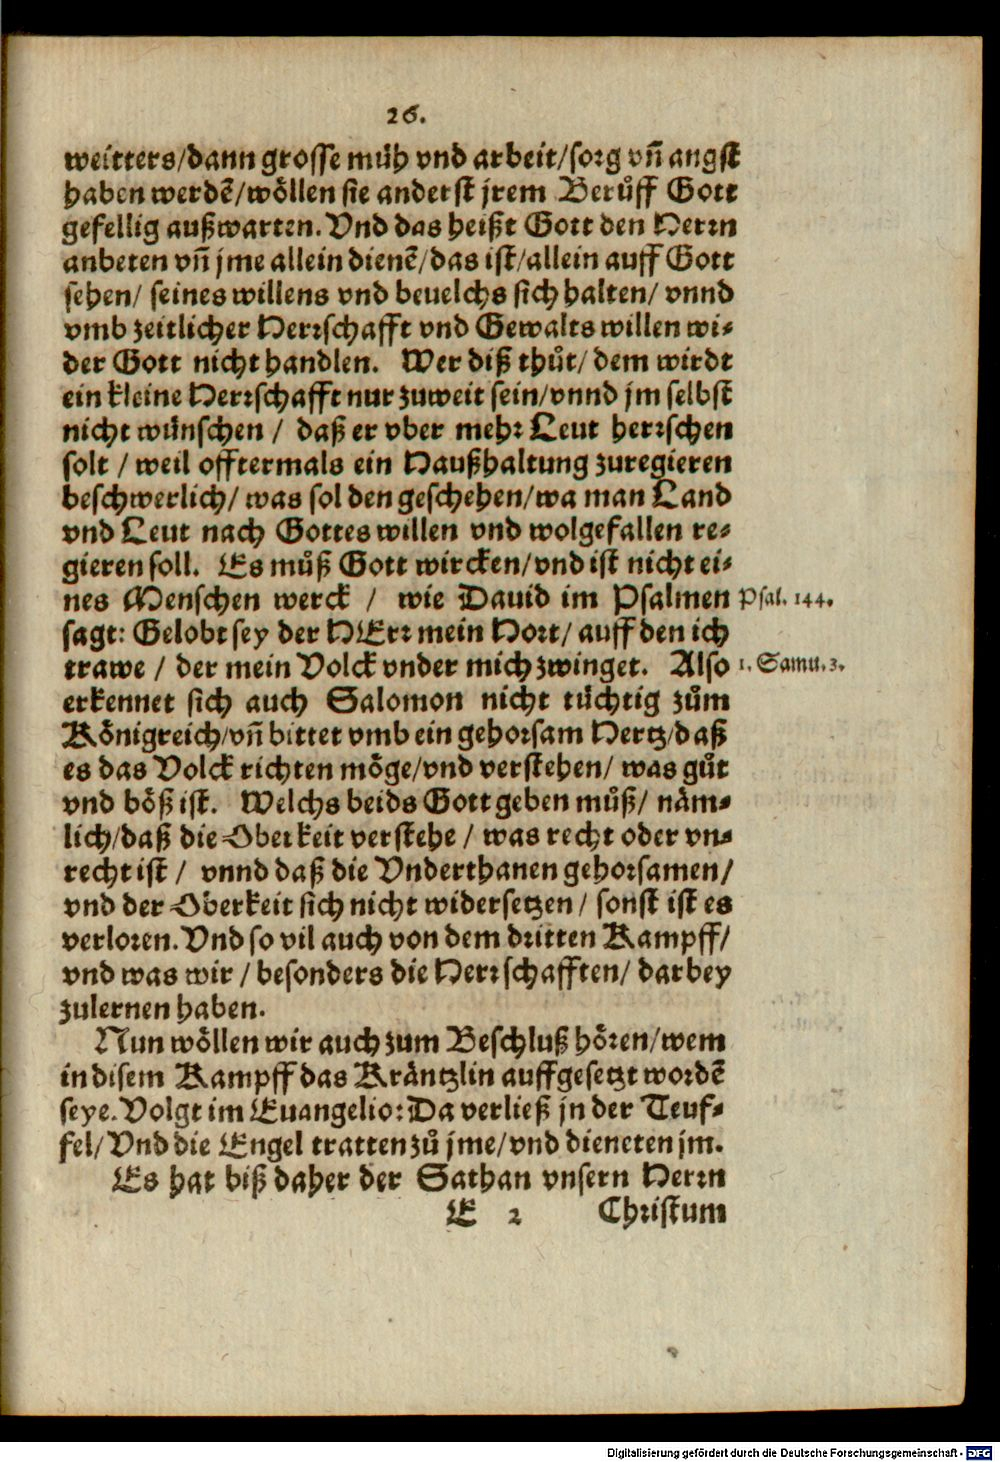 26.
weitters/dann grosse müh vnd arbeit/sorg vñ angst
haben werdẽ/wöllen sie anderst jrem Berůff Gott
gefellig außwarten. Vnd das heißt Gott den Herrn
anbeten vñ jme allein dienẽ/das ist/allein auff Gott
sehen/ seines willens vnd beuelchs sich halten/ vnnd
vmb zeitlicher Herrschafft vnd Gewalts willen wi-
der Gott nicht handlen. Wer diß thůt/ dem wirdt
ein kleine Herrschafft nur zuweit sein/vnnd jm selbst
nicht wünschen / daß er vber mehr Leut herrschen
solt / weil offtermals ein Haußhaltung zuregieren
beschwerlich/ was sol den geschehen/wa man Land
vnd Leut nach Gottes willen vnd wolgefallen re-
gieren soll. Es můß Gott wircken/vnd ist nicht ei-
nes Menschen werck / wie Dauid im Psalmen Psal. 144.
sagt: Gelobt sey der HErr mein Hort/ auff den ich
trawe / der mein Volck vnder mich zwinget. Also 1. Samu. 3.
erkennet sich auch Salomon nicht tüchtig zům
Königreich/vñ bittet vmb ein gehorsam Hertz/daß
es das Volck richten möge/vnd verstehen/ was gůt
vnd böß ist. Welchs beids Gott geben můß/ näm-
lich/daß die Oberkeit verstehe / was recht oder vn-
recht ist / vnnd daß die Vnderthanen gehorsamen/
vnd der Oberkeit sich nicht widersetzen / sonst ist es
verloren. Vnd so vil auch von dem dritten Kampff/
vnd was wir / besonders die Herrschafften/ darbey
zulernen haben.
Nun wöllen wir auch zum Beschluß hören/wem
in disem Kampff das Kräntzlin auffgesetzt wordẽ
seye. Volgt im Euangelio: Da verließ jn der Teuf-
fel/ Vnd die Engel tratten zů jme/vnd dieneten jm.
Es hat biß daher der Sathan vnsern Herrn
E 2 Christum
Digitalisierung gefördert durch die Deutsche Forschungsgemeinschaft - DFG